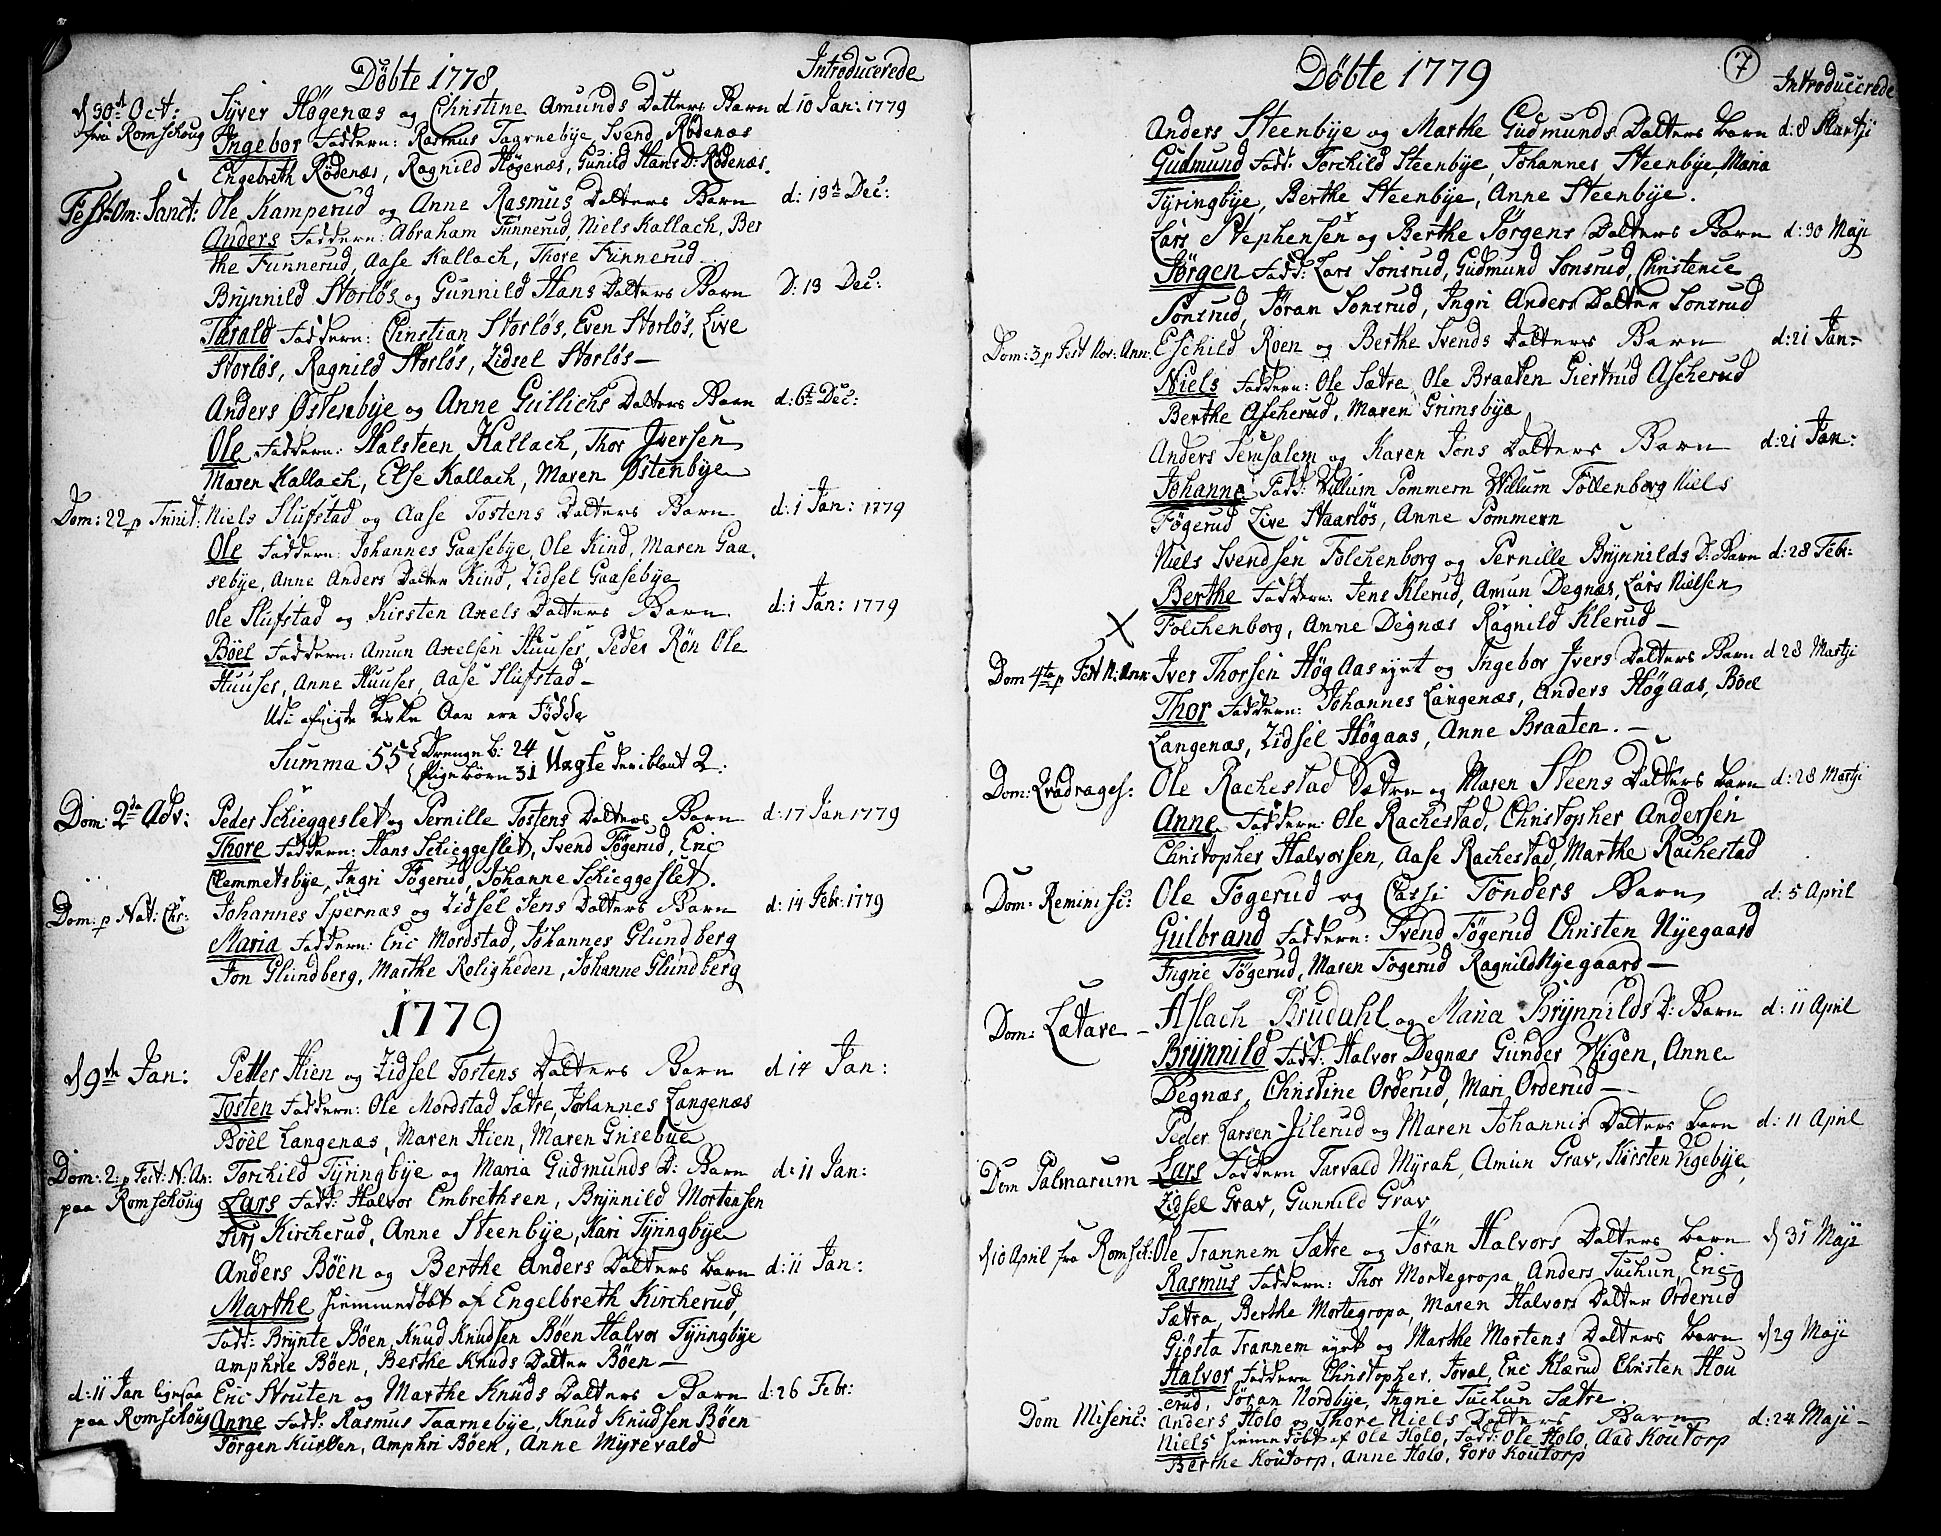 Døbte 1778
Introducerede
d 30t Oct: Syver Høgenæs og Christine Amunds Datters Barn d 10 Jan: 1779
fra Romschoug Ingebor Faddern: Rasmus Taarnebye Svend Rødenæs
Engebreth Rødenæs, Ragnild Høgenæs, Gunild Hans D: Rødenæs.
Fest: Om: Sanct: Ole Kamperud og Anne Rasmus Datters Barn d: 13t Dec:
Anders Faddern: Abraham Funnerud, Niels Kallach, Ber
the Funnerud, Aase Kallach, Thore Funnerud
Brynnild Storløs og Gunnild Hans Datters Barn D: 13 Dec:
Tarald Faddern: Christian Storløs, Even Storløs, Live
Storløs, Ragnild Storløs, Zidsel Storløs —
Anders Østenbye og Anne Gullichs Datters Barn d: 6t Dec:
Ole Faddern: Halsteen Kallach, Thor Iversen
Maren Kallach, Else Kallach, Maren Østenbye
Dom: 22 p Trinit: Niels Slufstad og Aase Tostens Datters Barn d: 1 Jan: 1779
Ole Faddern: Johannes Gaasebye, Ole Kind, Maren Gaa,
sebye, Anne Anders Datter Kind, Zidsel Gaasebye
Ole Slufstad og Kirsten Axels Datters Barn d: 1 Jan: 1779
Böel Faddern: Amun Axelsen Huuser, Peder Røn Ole
Huuser, Anne Huuser, Aase Slufstad —
Udi afvigte Kirke Aar ere Fødde
Summa 55 Drenge b: 24
Pige børn 31 Uægte deriblant 2:
Dom: 2da Adv: Peder Schieggeslet og Pernille Tostens Datters Barn d: 17 Jan 1779
Thore Faddern: Hans Schieggeslet, Svend Fögerud, Eric
Clemmetsbye, Ingri Fögerud, Johanne Schieggeslet.
Dom: p Nat: Chr: Johannes Spernæs og Zidsel Jens Datters Barn d: 14 Febr: 1779
Maria Faddern: Eric Mordstad, Johannes Glundberg
Jon Glundberg, Marthe Roligheden, Johanne Glundberg
1779
d 9de Jan: Petter Hien og Zidsel Tostens Datters Barn d 14 Jan:
Tosten Faddern: Ole Mordstad Sætre, Johannes Langenæs
Böel Langenæs, Maren Hien, Maren Grisebye
Dom: 2: p Fest: N: An: Torchild Tyringbye og Maria Gudmunds D: Barn d: 11 Jan:
paa Romschoug Lars Fadd: Halvor Embrethsen, Brynnild Mortensen
Siri Kircherud, Anne Steenbye, Kari Tyringbye
Anders Böen og Berthe Anders Datters Barn d: 11 Jan:
Marthe hiemmedøbt af Engelbreth Kircherud
Fadd: Brynte Böen, Knud Knudsen Böen Halvor Tyringbye
Amphrie Böen, Berthe Knuds Datter Böen —
d: 11 Jan ligesaa Eric Struten og Marthe Knuds Datters Barn d: 26 Febr:
paa Romschoug Anne Fadd: Rasmus Taarnebye, Knud Knudsen Böen
Jørgen Kursten, Amphri Böen, Anne Myrevald
Døbte 1779
7
Introducerede
Anders Steenbye og Marthe Gudmunds Datters Barn d: 8 Martji
Gudmund Fadd: Torchild Steenbye, Johannes Steenbye, Maria
Tyringbye, Berthe Steenbye, Anne Steenbye.
Lars Stephensen og Berthe Jørgens Datters Barn d: 30 Maji
Jørgen Fadd: Lars Sonsrud, Gudmund Sonsrud, Christence
Sonsrud, Jöran Sonsrud, Ingri Anders Datter Sonsrud
Dom: 3 p Fest Nov: Ann: Eschild Roen og Berthe Svends Datters Barn d: 21 Jan—
Niels Faddern: Ole Sætre, Ole Braaten Giertrud Ascherud
Berthe Ascherud, Maren Grimsbye
Anders Jerusalem og Karen Jons Datters Barn d: 21 Jan:
Johanne Fadd: Willum Pommern Willum Tollenborg Niels
Fögerud Live Staarløs, Anne Pommern
Niels Svendsen Folchenborg og Pernille Brynnilds D: Barn d: 28 Febr:
Berthe Faddern: Jens Klerud, Amun Degnæs, Lars Nielsen
X Folchenborg, Anne Degnæs Ragnild Klerud —
Dom 4te p Fest N: Ann: Iver Thorsen Høgaas eynt og Ingebor Ivers Datters Barn d 28 Martji
Thor Faddern: Johannes Langenæs, Anders Høgaas, Böel
Langenæs, Zidsel Høgaas, Anne Braaten. —
Dom: Qvadrages: Ole Rachestad Sætre og Maren Steens Datters Barn d: 28 Martji
Anne Faddern: Ole Rachestad, Christopher Andersen
Christopher Halvorsen, Aase Rachestad, Marthe Rachestad
Dom: Reminisc: Ole Fogerud og Cassi Tønders Barn d: 5 April
Gulbrand Faddern: Svend Fögerud Christen Nyegaard
Ingrie Fögerud, Maren Fogerud Ragnild Nyegaard —
Dom: Lætare — Aslach Brudahl og Maria Brynnilds D: Barn d: 11 April
Brynnild Fadd: Halvor Degnæs Gunder Wigen, Anne
Degnæs, Christine Orderud, Mari Orderud —
Peder Larsen Jilerud og Maren Johannis Datters Barn d: 11 April
Dom Palmarum — Lars Faddern Tarvald Myrah, Amun Grav, Kirsten Vigebye
Zidsel Grav, Gunnild Grav
d 10 April fra Romsch: Ole Trannem Sætre og Jöran Halvors Datters Barn d 31 Maji
Rasmus Faddern: Thor Mortegropa, Anders Tuchun, Eric
Sætra, Berthe Mortegropa, Maren Halvors Datter Orderud
Giøsta Trannem eynt og Marthe Mortens Datters Barn d 29 Maji
Halvor Faddern Christopher, Joval, Eric Klærud Christen Hou
erud, Jöran Nordbye, Ingrie Tuchun Sætre
Dom Miseric: Anders Holo og Thore Niels Datters Barn d: 24 Maji —
Niels hiemmedøbt af Ole Holo, Fadd: Ole Holo, Aad Koutorp
Berthe Koutorp, Anne Holo, Goro Koutorp